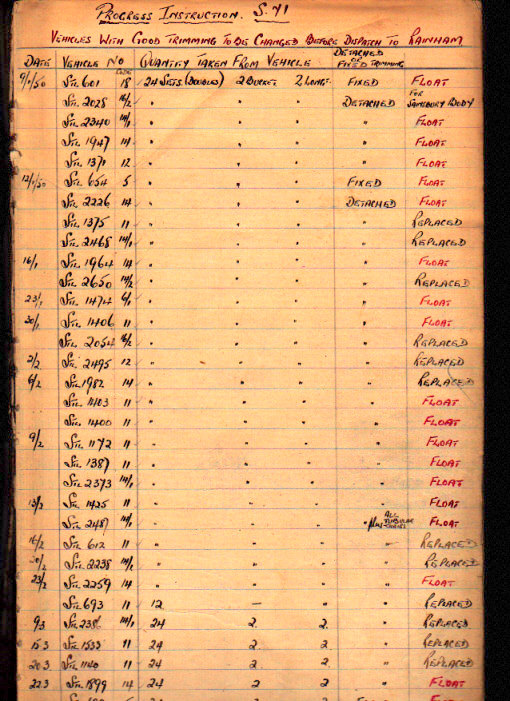 PROGRESS INSTRUCTION. S.71
VEHICLES WITH GOOD TRIMMING TO BE CHANGED BEFORE DISPATCH TO RAINHAM
DATE VEHICLE NO QUANTITY TAKEN FROM VEHICLE DETACHED OR FIXED TRIMMING
CODE
9/1/50 STL 601 18 24 SETS (DOUBLES) 2 BUCKET 2 LONGT. FIXED FLOAT
STL 2028 16/2 " " " DETACHED FOR SAINSBURY BODY
STL 2340 14/1 " " " " FLOAT
STL 1947 14 " " " " FLOAT
STL 1371 12 " " " " FLOAT
12/1/50 STL 654 5 " " " FIXED FLOAT
STL 2226 14 " " " DETACHED FLOAT
STL 1375 11 " " " " REPLACED
STL 2468 14/1 " " " " REPLACED
16/1 STL 1964 14 " " " " FLOAT
STL 2650 14/2 " " " " REPLACED
23/1 STL 1474 6/1 " " " " FLOAT
30/1 STL 1406 11 " " " " FLOAT
STL 2054 16/2 " " " " REPLACED
2/2 STL 2495 12 " " " " REPLACED
6/2 STL 1982 14 " " " " REPLACED
STL 1403 11 " " " " FLOAT
STL 1400 11 " " " " FLOAT
9/2 STL 1172 11 " " " " FLOAT
STL 1387 11 " " " " FLOAT
STL 2373 14/1 " " " " FLOAT
13/2 STL 1425 11 " " " " FLOAT
STL 2487 14/1 " " " " plus ALL TUBULAR FLOAT
16/2 STL 612 11 " " " " REPLACED
20/2 STL 2238 14/2 " " " " REPLACED
23/2 STL 2259 14 " " " " FLOAT
STL 693 11 12 — " " REPLACED
9.3 STL 2386 14/1 24 2 2 " REPLACED
15.3 STL 1533 11 24 2 2 " REPLACED
20.3 STL 1140 11 24 2 2 " REPLACED
22.3 STL 1899 14 24 2 2 " FLOAT